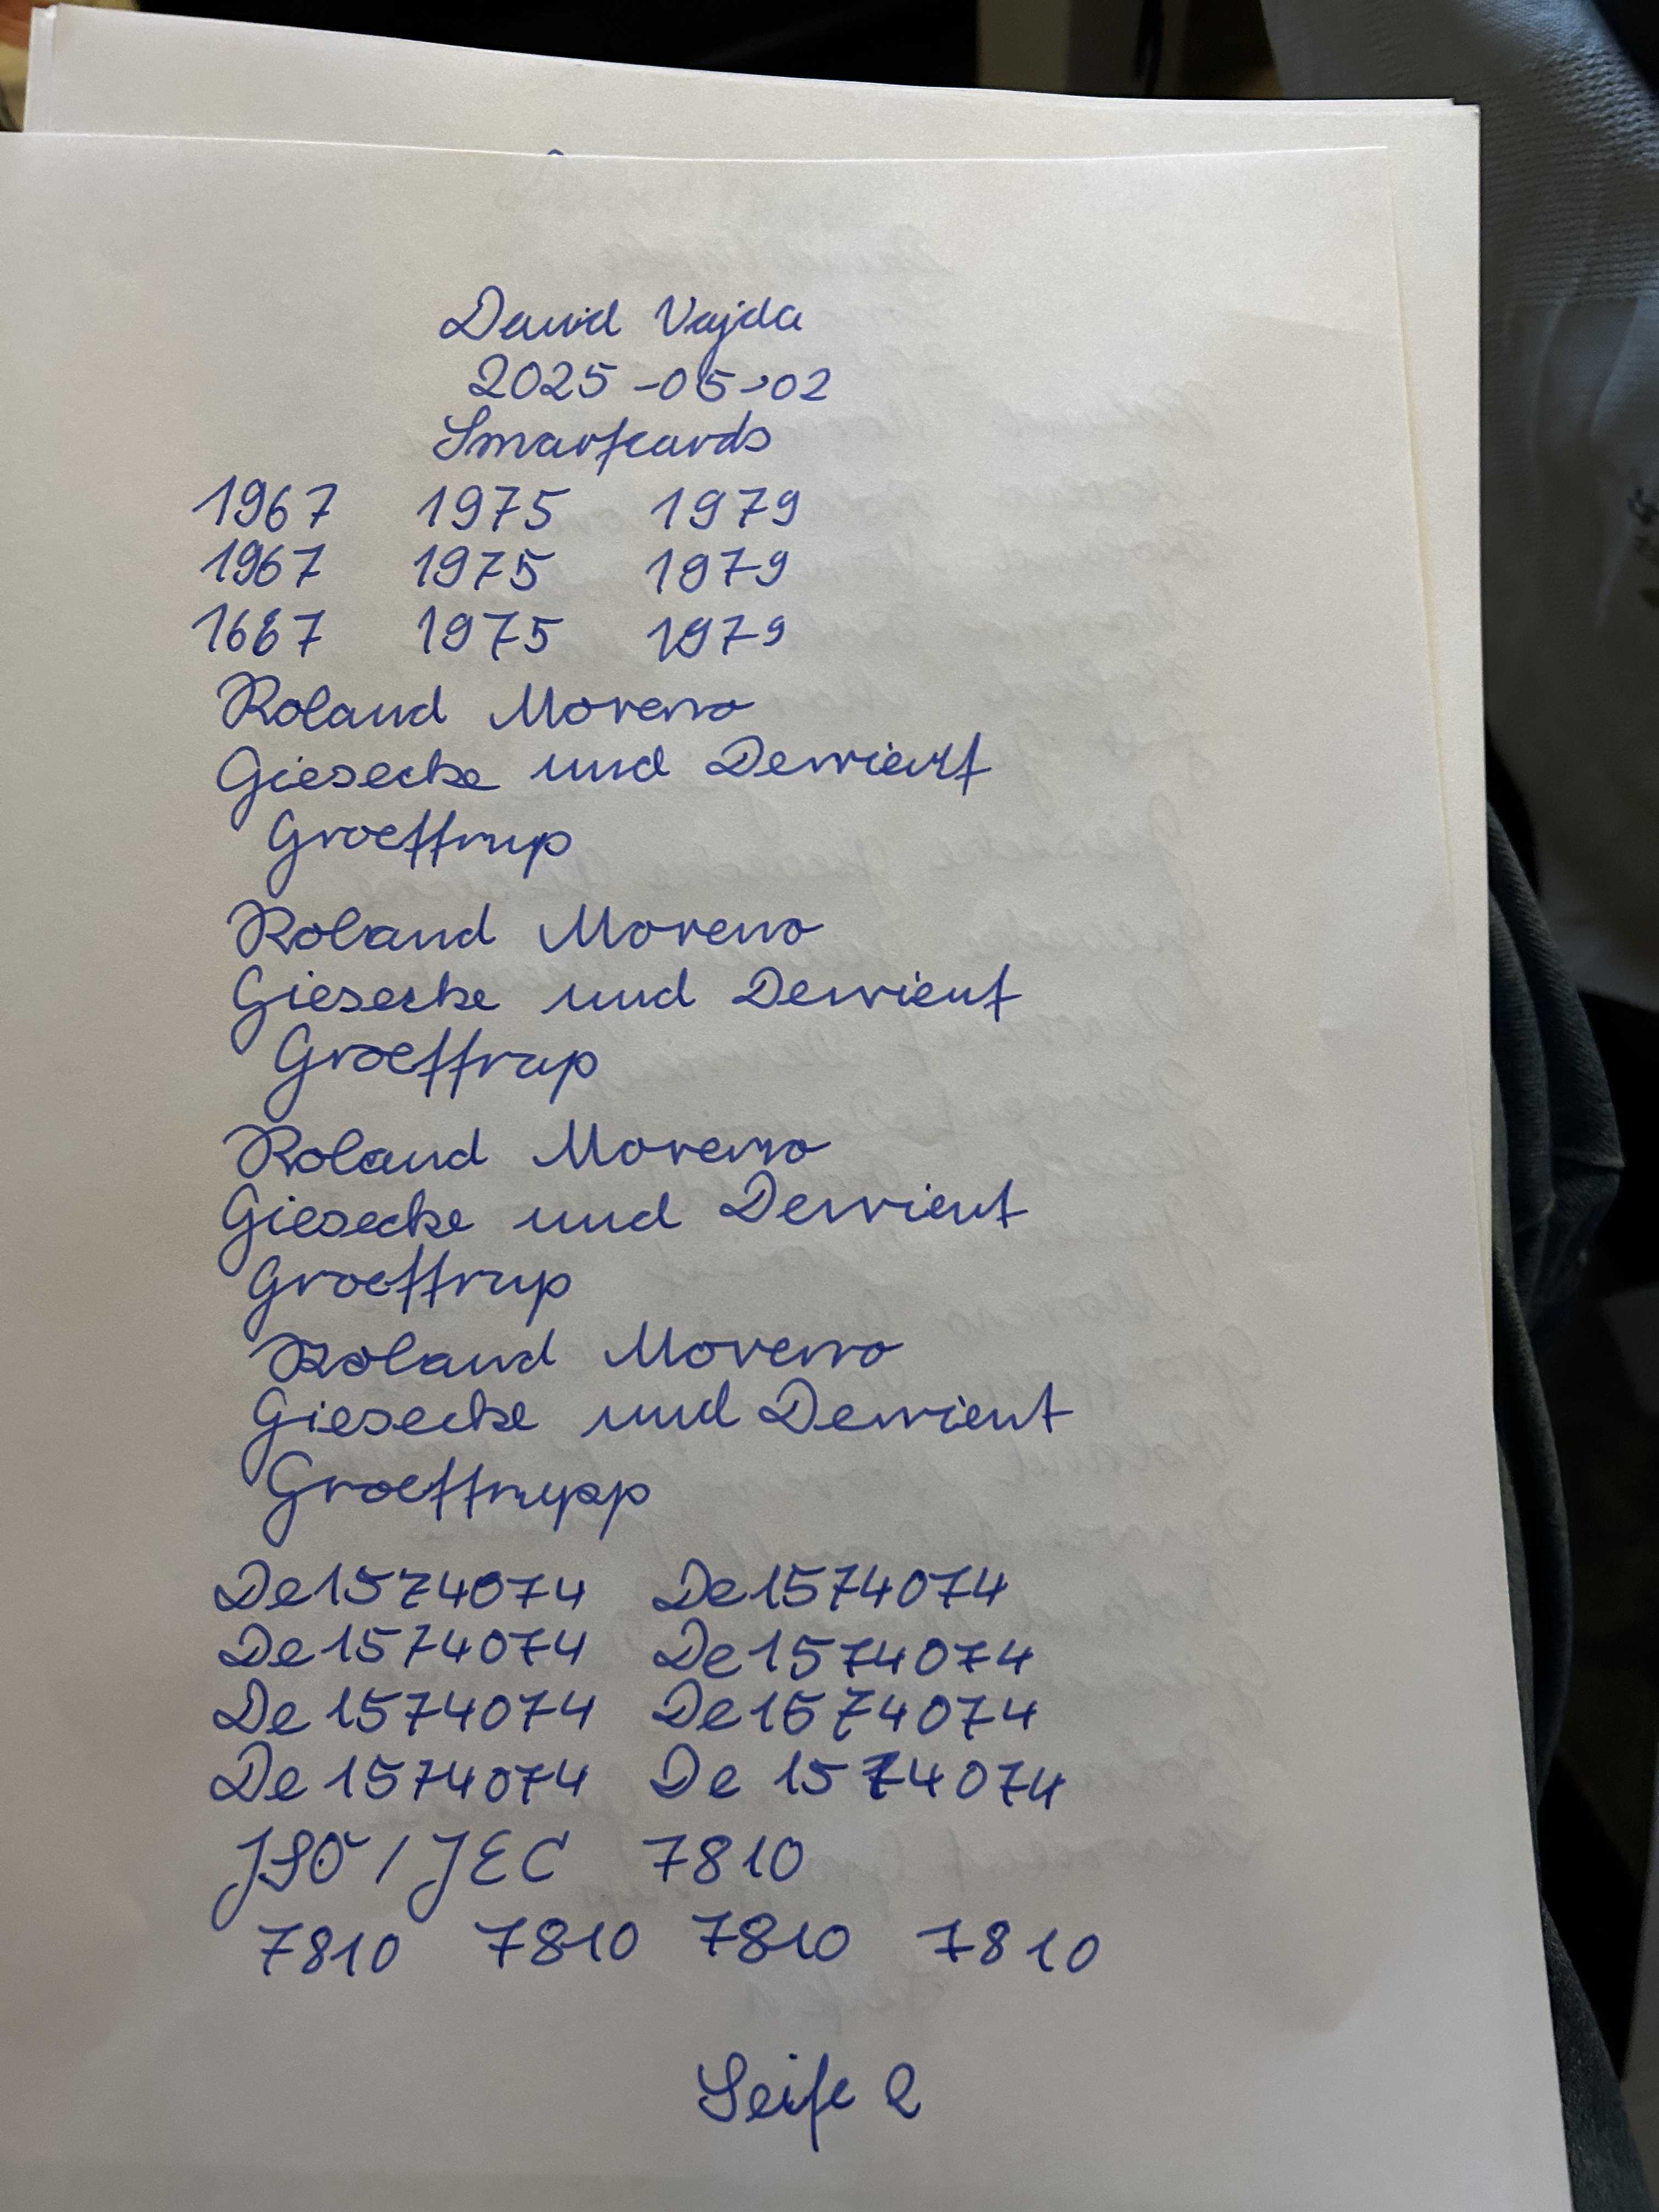 David Vajda
2025-05-02
Smartcards
1967 1975 1979
1967 1975 1979
1667 1975 1979
Roland Moreno
Giesecke und Devrient
Groettrup
Roland Moreno
Giesecke und Devrient
Groettrup
Roland Moreno
Giesecke und Devrient
Groettrup
Roland Moreno
Giesecke und Devrient
Groettrupp
De1574074 De1574074
De1574074 De1574074
De1574074 De1574074
De1574074 De 1574074
ISO / IEC 7810
7810 7810 7810 7810
Seite 2